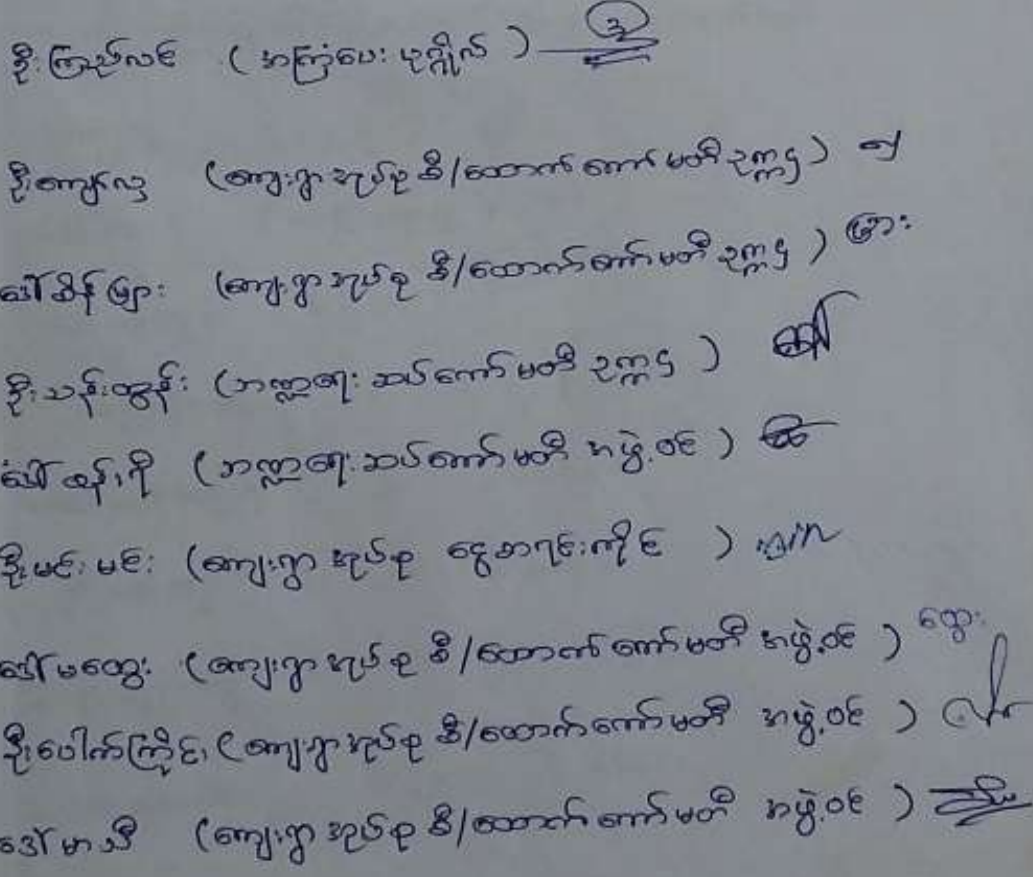 ဦးကြည်လင် (အကြံပေးပုဂ္ဂိုလ်)
ဦးကျော်လှ (ကျေးရွာအုပ်စု စီ/ထောက်ကော်မတီဥက္ကဌ)
ဒေါ်စိန်များ (ကျေးရွာအုပ်စု စီ/ထောက်ကော်မတီဥက္ကဌ) များ
ဦးသန်းထွန်း (ဘဏ္ဍာရေးဆပ်ကော်မတီ ဥက္ကဌ)
ဒေါ် (ဘဏ္ဍာရေးဆပ်ကော်မတီ အဖွဲ့ဝင်)
ဦးမင်းမင်း (ကျေးရွာအုပ်စု ငွေစာရင်းကိုင်)
ဒေါ်မထွေး (ကျေးရွာအုပ်စု စီ/ထောက်ကော်မတီ အဖွဲ့ဝင်) ထွေး
ဦးပေါက်ကြိုင် (ကျေးရွာအုပ်စု စီ/ထောက်ကော်မတီ အဖွဲ့ဝင်)
ဒေါ်မာသီ (ကျေးရွာအုပ်စု စီ/ထောက်ကော်မတီ အဖွဲ့ဝင်)